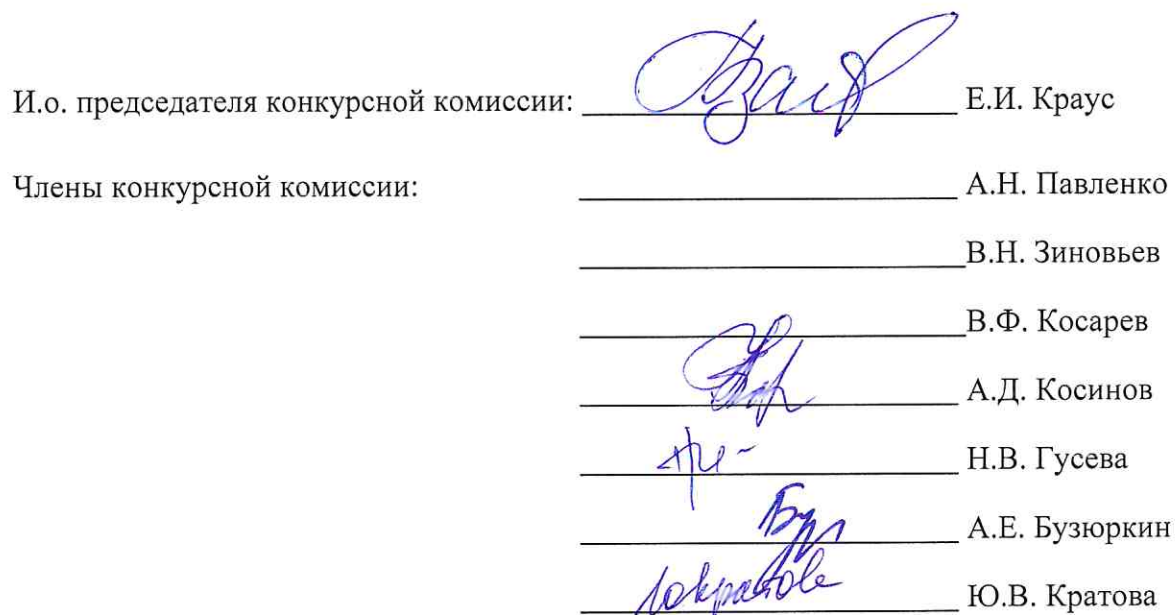 И.о. председателя конкурсной комиссии: Е.И. Краус
Члены конкурсной комиссии: А.Н. Павленко
В.Н. Зиновьев
В.Ф. Косарев
А.Д. Косинов
Н.В. Гусева
А.Е. Бузюркин
Ю.В. Кратова